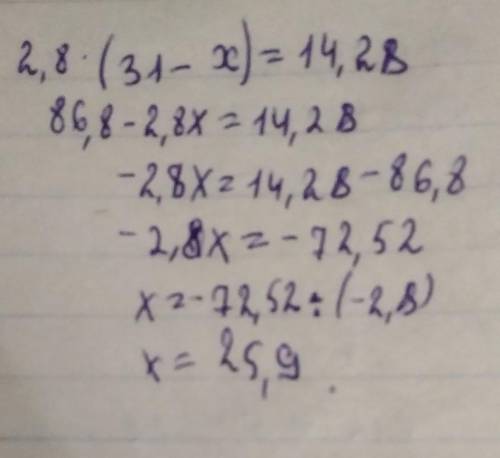 2,8 · (31 - x) = 14,28
86,8 - 2,8x = 14,28
-2,8x = 14,28 - 86,8
-2,8x = -72,52
x = -72,52 ÷ (-2,8)
x = 25,9